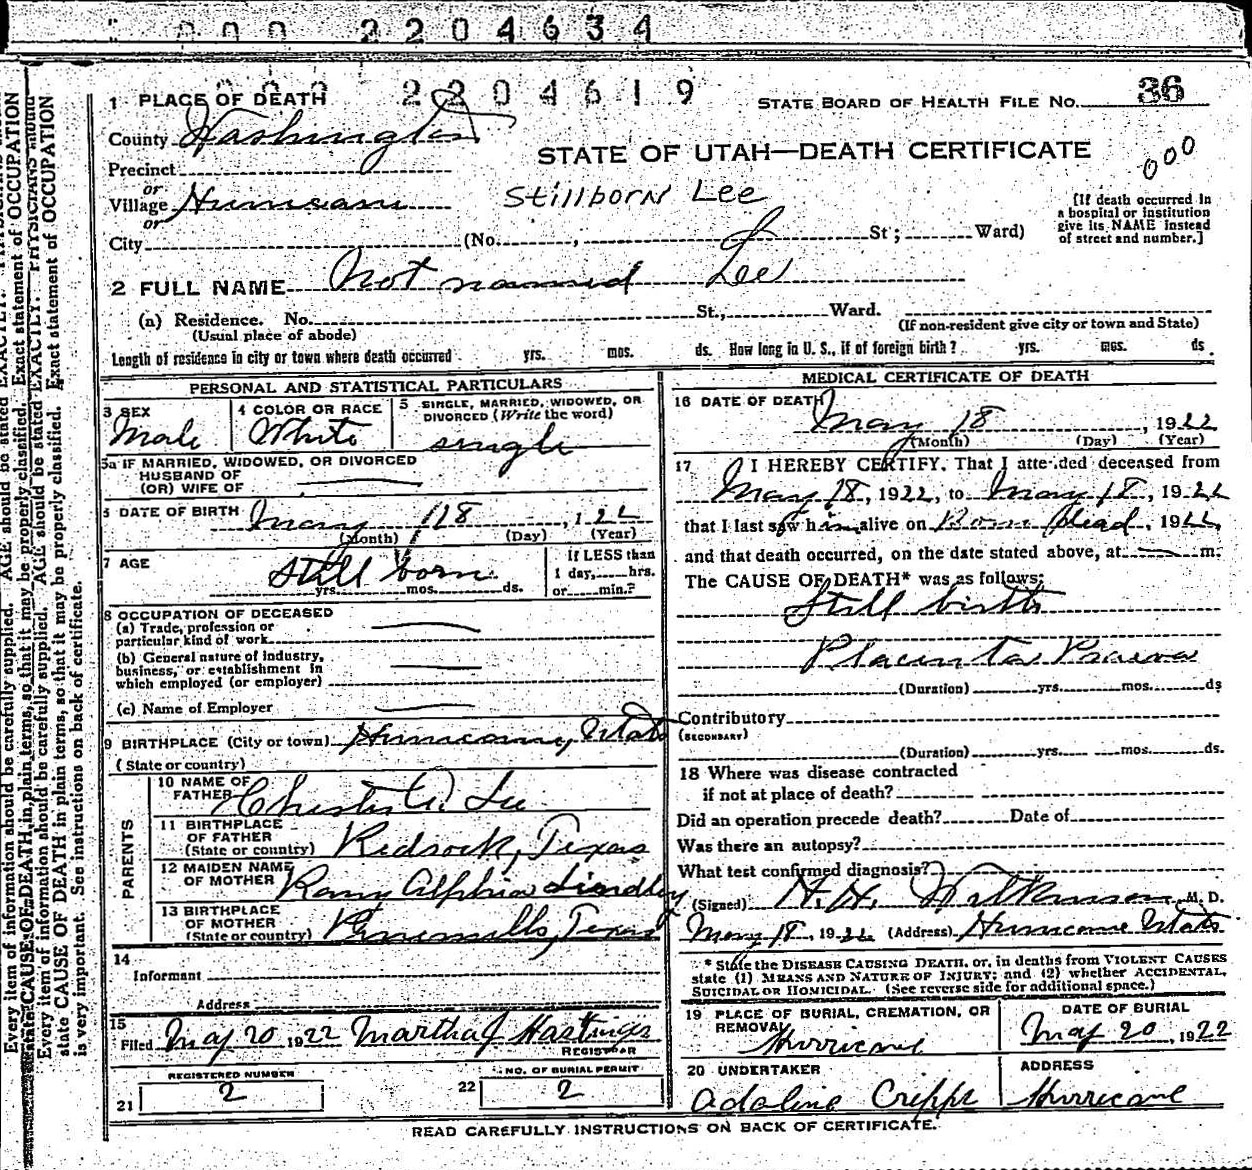 000 2204634
000 2204619
36
1 PLACE OF DEATH
STATE BOARD OF HEALTH FILE No.
County Washington
STATE OF UTAH—DEATH CERTIFICATE
000
Precinct
or
Village Hurricane
Stillborn Lee
[If death occurred in
a hospital or institution
give its NAME instead
of street and number.]
or
City (No. , St; Ward)
2 FULL NAME Not named Lee
(a) Residence. No. St., Ward.
(Usual place of abode)
(If non-resident give city or town and State)
Length of residence in city or town where death occurred yrs. mos. ds. How long in U. S., if of foreign birth? yrs. mos. ds.
PERSONAL AND STATISTICAL PARTICULARS
3 SEX
Male
4 COLOR OR RACE
White
5 SINGLE, MARRIED, WIDOWED, OR
DIVORCED (Write the word)
single
5a IF MARRIED, WIDOWED, OR DIVORCED
HUSBAND OF
(OR) WIFE OF
6 DATE OF BIRTH May 18, 122
(Month) (Day) (Year)
7 AGE
Still born
yrs. mos. ds.
If LESS than
1 day, hrs.
or min.?
8 OCCUPATION OF DECEASED
(a) Trade, profession or
particular kind of work
(b) General nature of industry,
business, or establishment in
which employed (or employer)
(c) Name of Employer
9 BIRTHPLACE (City or town) Hurricane, Utah
(State or country)
PARENTS
10 NAME OF
FATHER Chester A. Lee
11 BIRTHPLACE
OF FATHER
(State or country) Redrock, Texas
12 MAIDEN NAME
OF MOTHER Lindley
13 BIRTHPLACE
OF MOTHER
(State or country) Pinemills, Texas
14
Informant
Address
15
Filed May 20 1922 Martha J Hastings
REGISTRAR
REGISTERED NUMBER
21 2
NO. OF BURIAL PERMIT
22 2
MEDICAL CERTIFICATE OF DEATH
16 DATE OF DEATH
May 18, 1922
(Month) (Day) (Year)
17 I HEREBY CERTIFY, That I attended deceased from
May 18, 1922, to May 18, 1922
that I last saw him alive on Born dead, 1922,
and that death occurred, on the date stated above, at m.
The CAUSE OF DEATH* was as follows:
Still birth
Placenta Praevia
(Duration) yrs. mos. ds
Contributory
(SECONDARY)
(Duration) yrs. mos. ds.
18 Where was disease contracted
if not at place of death?
Did an operation precede death? Date of
Was there an autopsy?
What test confirmed diagnosis?
(Signed) H. H. Wilkinson, M. D.
May 18, 1922 (Address) Hurricane Utah
* State the DISEASE CAUSING DEATH, or, in deaths from VIOLENT CAUSES
state (1) MEANS AND NATURE OF INJURY; and (2) whether ACCIDENTAL,
SUICIDAL OR HOMICIDAL. (See reverse side for additional space.)
19 PLACE OF BURIAL, CREMATION, OR
REMOVAL
Hurricane
DATE OF BURIAL
May 20, 1922
20 UNDERTAKER
Adaline Cripps
ADDRESS
Hurricane
READ CAREFULLY INSTRUCTIONS ON BACK OF CERTIFICATE.
Every item of information should be carefully supplied. AGE should be stated EXACTLY. PHYSICIANS should
state CAUSE OF DEATH in plain terms, so that it may be properly classified. Exact statement of OCCUPATION
is very important. See instructions on back of certificate.